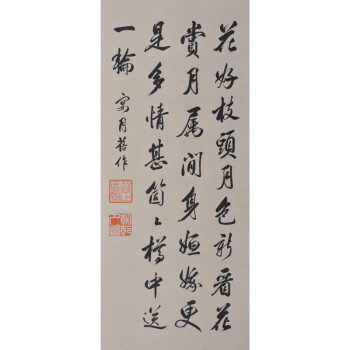 花好枝頭月色新看花
賞月屬閒身姮娥更
是多情甚箇〻樽中送
一輪 宴月舊作